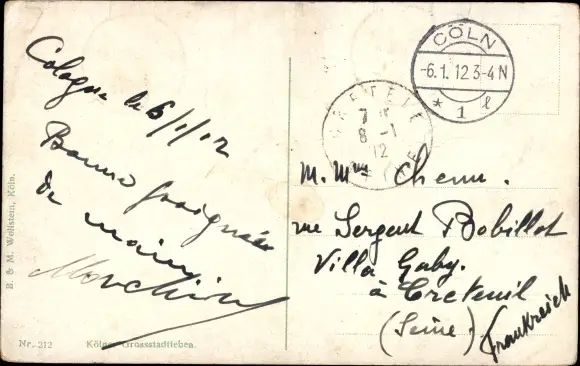 Cologne le 6/1/12
Bonne poignée
de main
CÖLN
-6.1.12 3-4N
* 1 l
7
8 -1
12
M. Mme Chenu.
rue Sergent Bobillot
Villa Gaby.
à Creteuil
(Seine)
Frankreich
B. & M. Wellstein, Köln.
Nr. 212 Kölner Grossstadtleben.